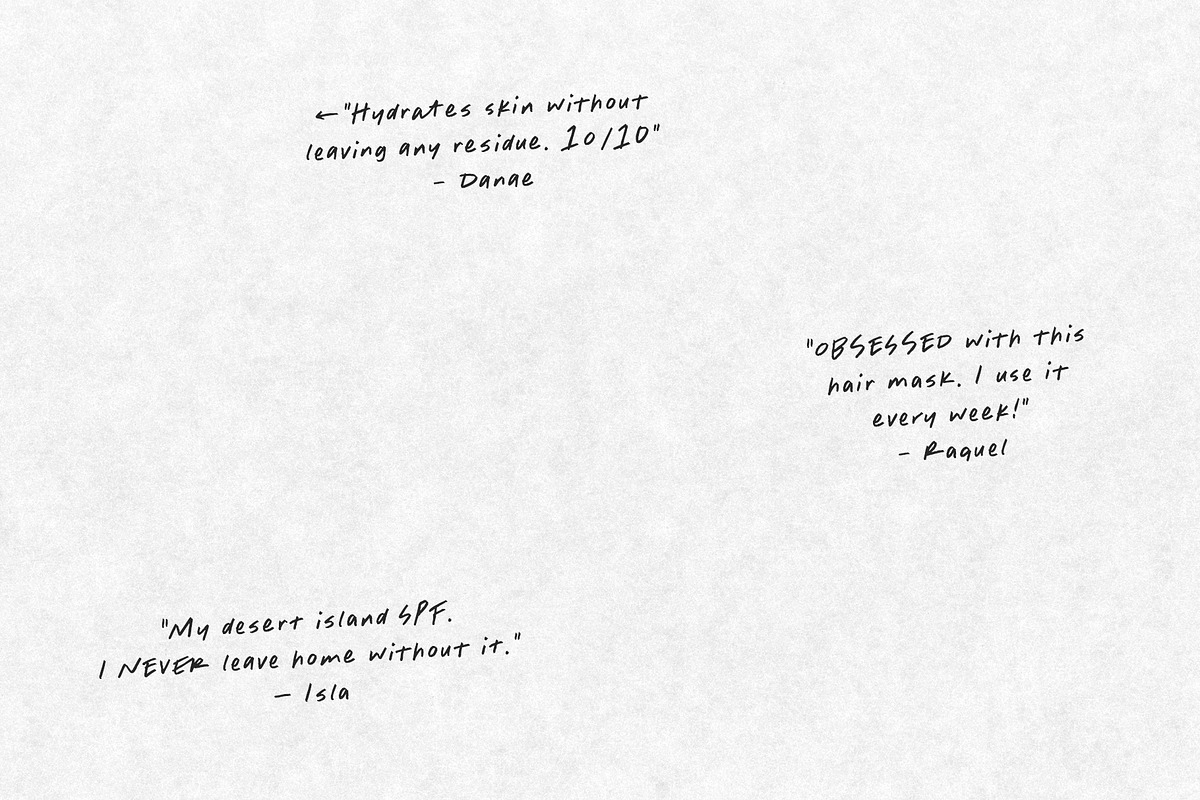 ←"Hydrates skin without
leaving any residue. 10/10"
- Danae
"OBSESSED with this
hair mask. I use it
every week!"
- Raquel
"My desert island SPF.
I NEVER leave home without it."
- Isla